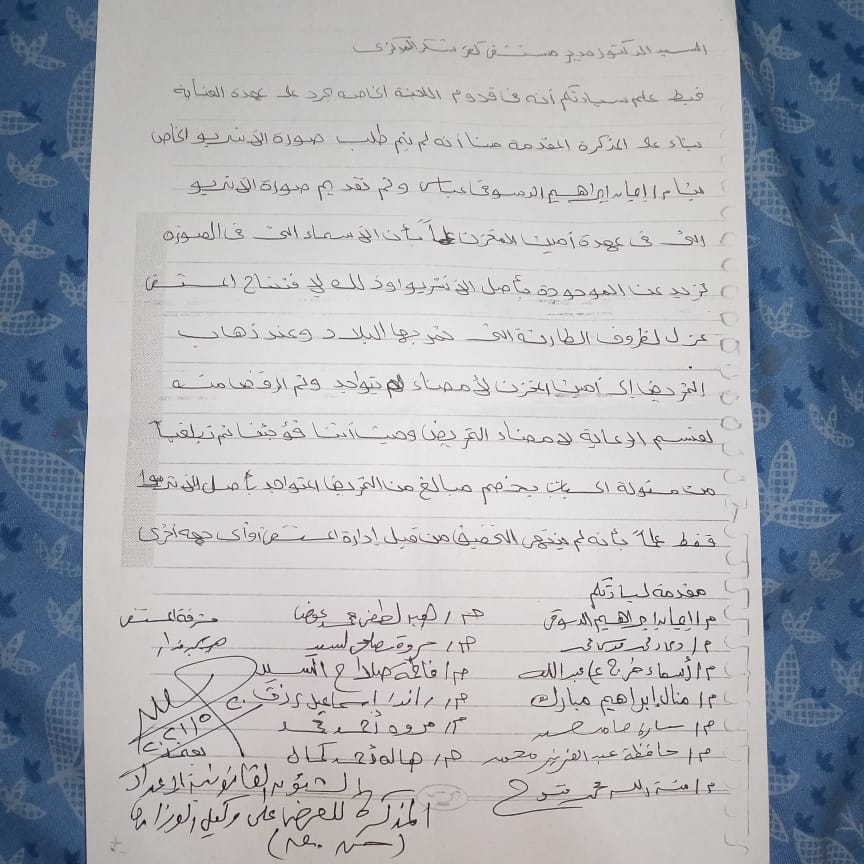 السيد الدكتور مدير مستشفى كفر شكر المركزى
نحيط علم سيادتكم أنه فى قدوم اللجنة الخاصة جرد على عهدة العناية
بناء على المذكرة المقدمة منا أنه لم يتم طلب صورة الانتريو الخاص
بنا م/ إيمان ابراهيم الدسوقى عباس وتم تقديم صورة الانتريو
التى فى عهدة أمين المخزن علماً بأن الأسماء التى فى الصورة
تزيد عن الموجودة بأصل الانتريو وذلك لافتتاح المستشفى
عزل لظروف الطارئة التى تمر بها البلاد وعند ذهاب
التمريض إلى أمين المخزن لأمضاء لم يتواجد وتم الرفض منه
لقسم الرعاية لامضاء التمريض وحيث أننا فوجئنا تم تبلغينا
من مسئولة الحسابات بخصم مبالغ من التمريض المتواجد بأصل الانتريو
فقط علماً بأنه لم ينتهى التحقيق من قبل إدارة المستشفى أو أى جهه أخرى
مقدمة لسيادتكم
م/ إيمان ابراهيم الدسوقى م/ عبد لطفى عوض مشرفة المستشفى
م/ مروة صالح السيد
م/ أسماء فرج على عبد الله م/ فاطمة صلاح السيد
م/ منال إبراهيم مبارك م/ راندا اسماعيل رزق
م/ سارة حامد م/ مروه أحمد محمد
م/ حافظة عبد العزيز محمد م/ هاله أحمد كمال
م/ منة الله محمد
الشئون القانونية لاعداد
المذكرة للعرض على وكيل الوزارة